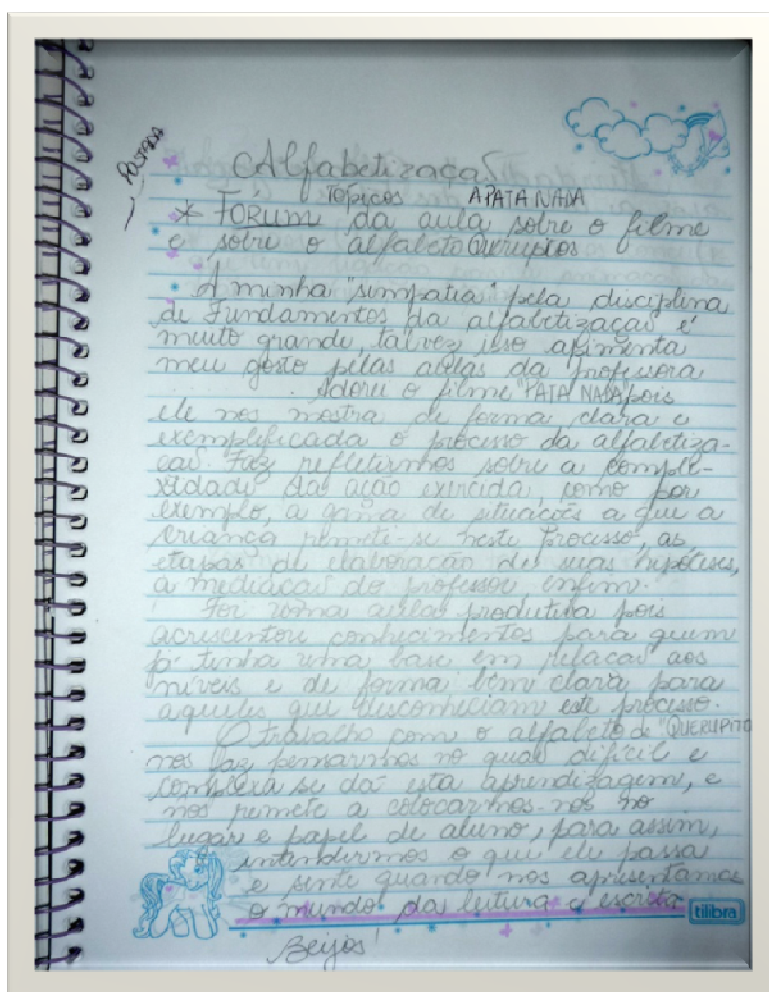 POSTADA
Alfabetização
Tópicos A PATA NADA
* FORUM da aula sobre o filme
e sobre o alfabeto Querupitos
A minha "simpatia" pela disciplina
de Fundamentos da alfabetização é
muito grande, talvez isso apimenta
meu gosto pelas aulas da professora
Adorei o filme "PATA NADA" pois
ele nos mostra de forma clara e
exemplificada o processo da alfabetiza-
ção. Faz refletirmos sobre a comple-
xidade da ação exercida, como por
exemplo, a gama de situações a que a
criança remeti-se neste processo, as
etapas de elaboração de suas hipóteses,
a mediação do professor enfim.
Foi uma aula produtiva pois
acrescentou conhecimentos para quem
já tinha uma base em relação aos
níveis e de forma bem clara para
aqueles que desconheciam este processo.
O trabalho com o alfabeto de "QUERUPITO
nos faz pensarmos no quão difícil e
complexa se dá esta aprendizagem, e
nos remete a colocarmos-nos no
lugar e papel de aluno, para assim,
entendermos o que ele passa
e sente quando nos apresentamos
o mundo da leitura e escrita
tilibra
Beijos!